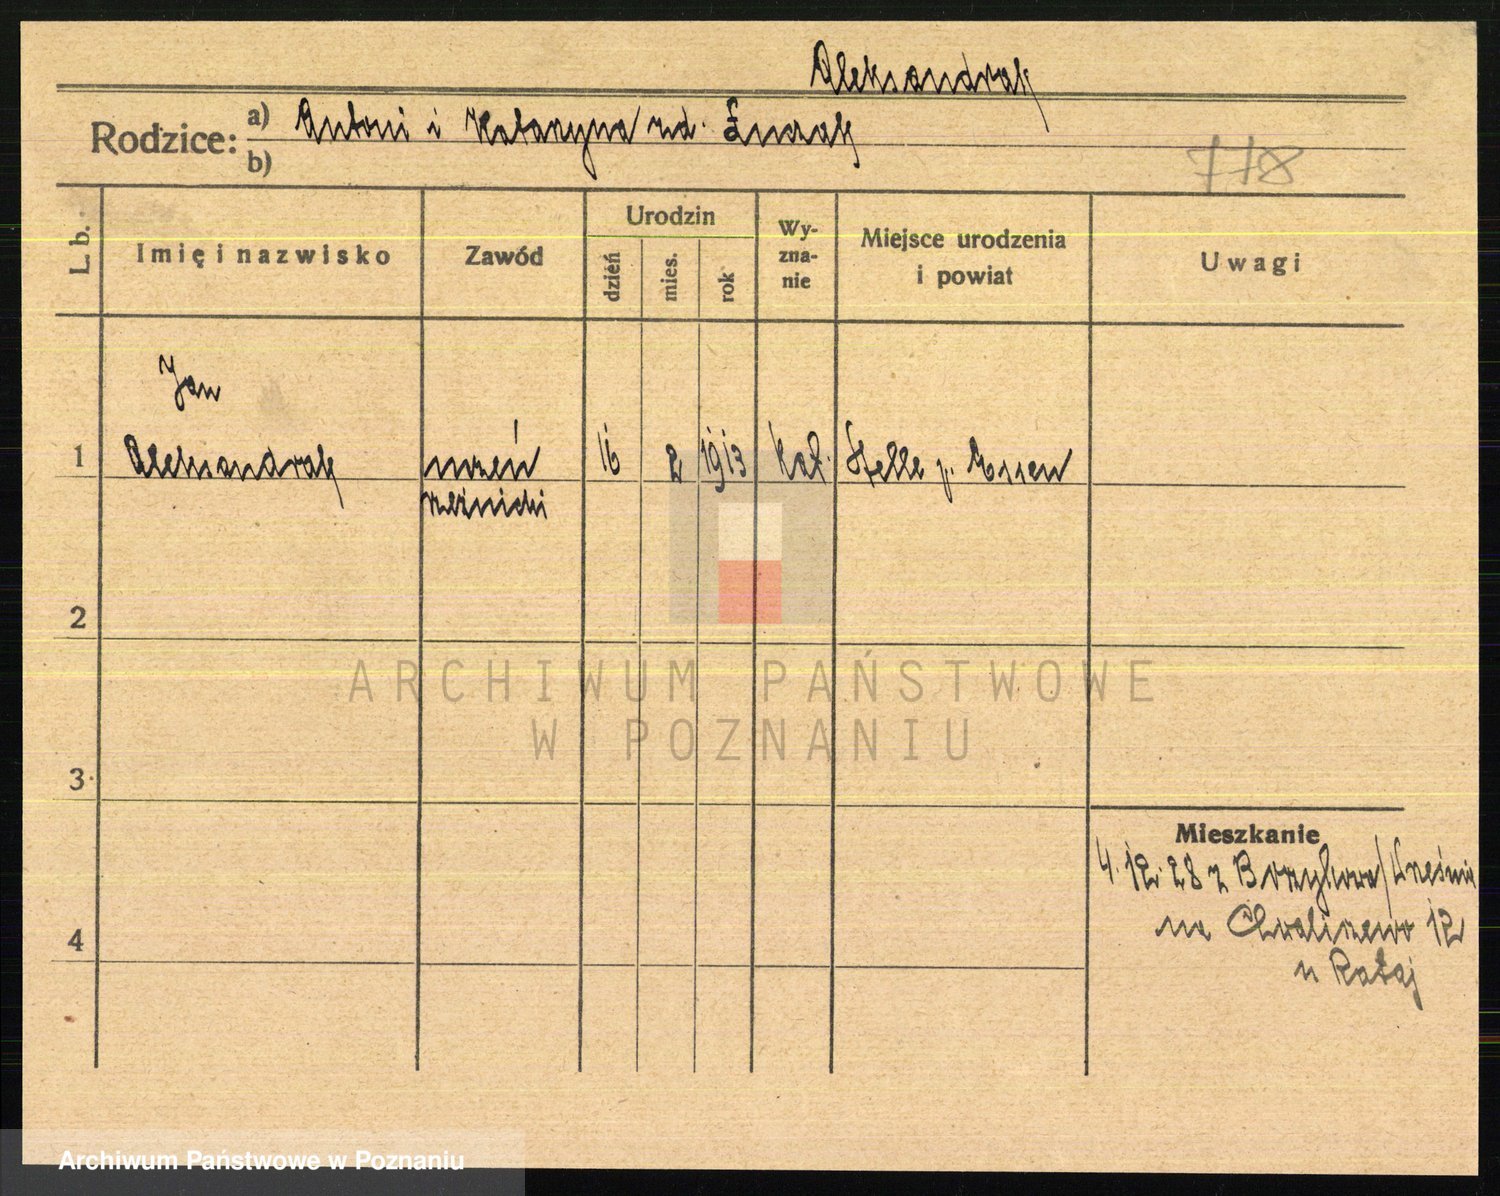 Aleksandrak
Rodzice: a) Antoni i Katarzyna zd. Żurak
b)
778
L. b.
Imię i nazwisko
Zawód
Urodzin
dzień
mies.
rok
Wy-
zna-
nie
Miejsce urodzenia
i powiat
Uwagi
Jan
1 Aleksandrak uczeń 16 2 1913 kat. Stelle p. Essen
rzeźnicki
2
ARCHIWUM PAŃSTWOWE
W POZNANIU
3
Mieszkanie
4. 12. 28 z Borzykowa/Wrześnie
na Chwaliszewo 12
4
u Rataj
Archiwum Państwowe w Poznaniu